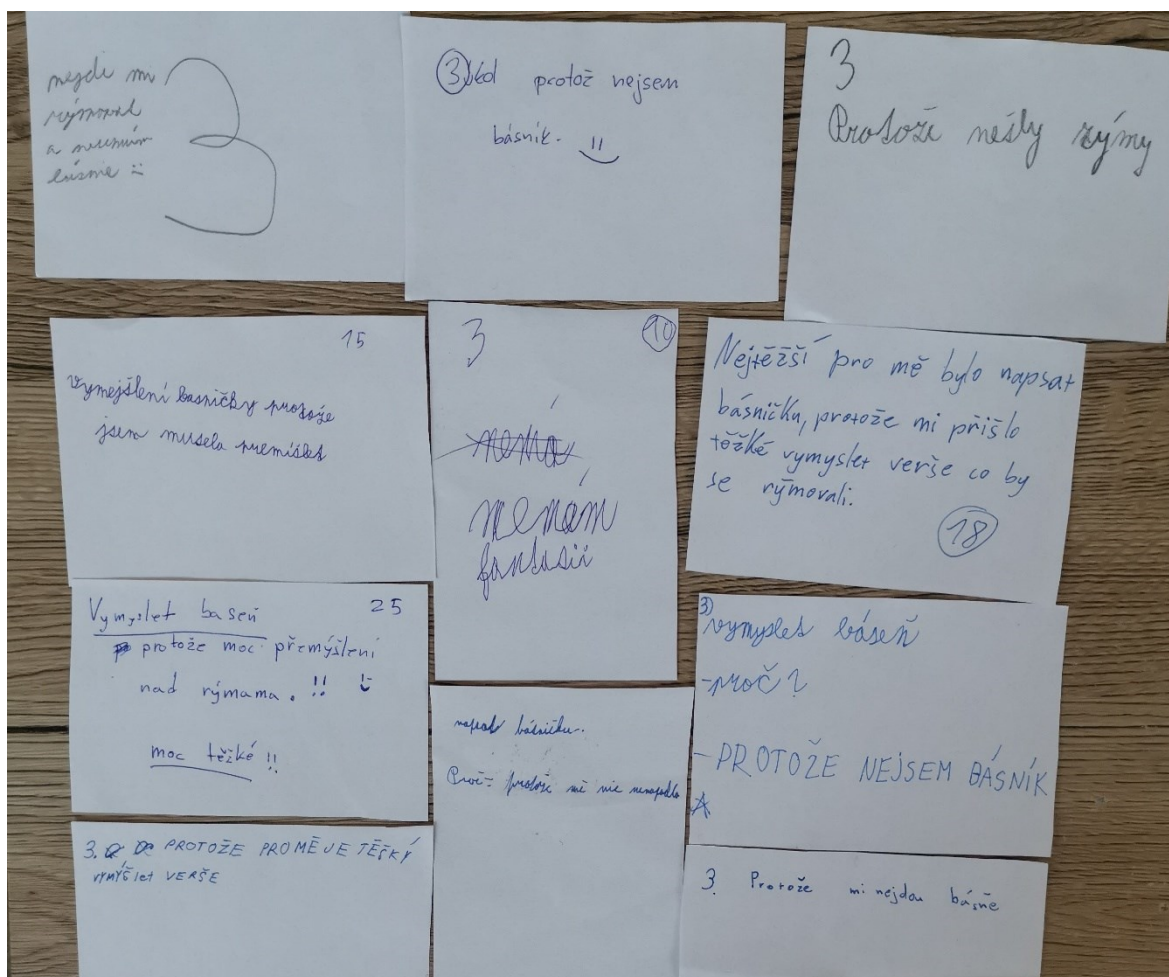 nejde mi
rýmovat
a neumím
básnie
3
3 úkol protož nejsem
básník.
3
Protože nešly rýmy
15
Vymejšlení basničky protože
jsem musela premíšlet
3
10
nemá
nemám
fantasii
Nejtěžší pro mě bylo napsat
básničku, protože mi přišlo
těžké vymyslet verše co by
se rýmovali.
18
Vymyslet baseň
25
protože moc přemýšlení
nad rýmama. !!
moc těžké !!
napsat básničku.
Proč- protože mě nic nenapadlo
3) vymyslet báseň
-proč?
-PROTOŽE NEJSEM BÁSNÍK
3. PROTOŽE PROMĚ JE TĚŠKÝ
VYMÝŠlet VERŠE
3. Protože mi nejdou básně